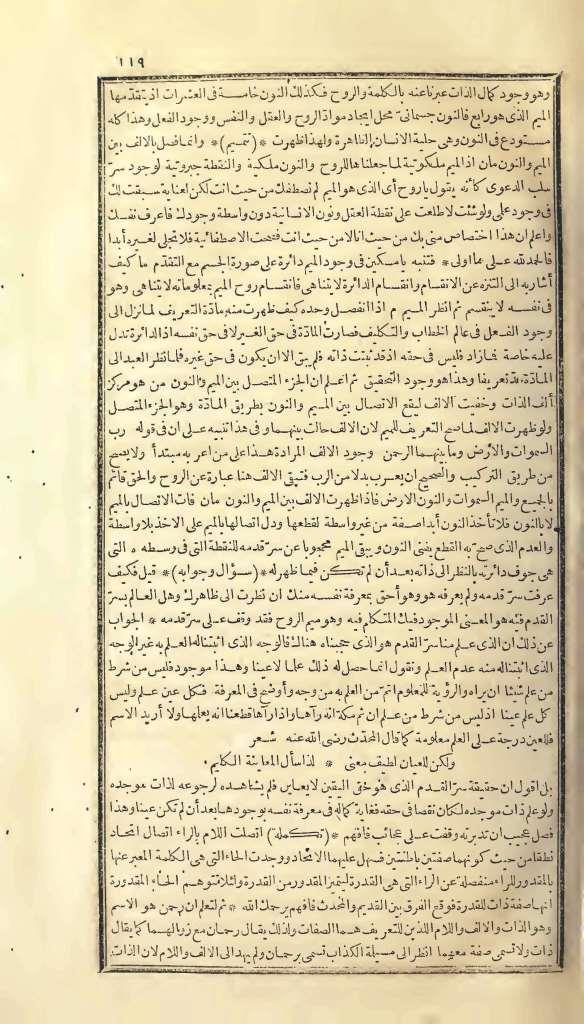 ١١٩
وهو وجود كمال الذات عبرنا عنه بالكلمة والروح فكذلك النون خامسة فى العشرات اذ يتقدمها
الميم الذى هو رابع فالنون جسمانى محل ايجاد مواد الروح والعقل والنفس ووجود الفعل وهذا كله
مستودع فى النون وهى حلية الانسان الظاهرة ولهذا ظهرت * (تتميم) * وانما فصل بالالف بين
الميم والنون مان اذ الميم ملكوتية لما جعلناها للروح والنون ملكية والنقطة جبروتية لوجود سر
سلب الدعوى كأنه يقول ياروح أى الذى هو الميم لم نصطفك من حيث انت لكن لعناية سبقت لك
فى وجود علمى ولو شئت لاطلعت على نقطة العقل ونون الانسانية دون واسطة وجودك فاعرف نفسك
واعلم ان هذا اختصاص منى بك من حيث انا لا من حيث انت فصحت الاصطفائية فلا تجلى لغيره أبدا
فالحمد لله على ما أولى * فتنبه يا مسكين فى وجود الميم دائرة على صورة الجسم مع التقدم ما كيف
أشار به الى التنزه عن الانقسام وانقسام الدائرة لا يتناهى فانقسام روح الميم بمعلوماته لا يتناهى وهو
فى نفسه لا ينقسم ثم انظر الميم م اذا انفصل وحده كيف ظهرت منه مادة التعريف لما نزل الى
وجود الفعل فى عالم الخطاب والتكليف فصارت المادة فى حق الغير لا فى حق نفسه اذ الدائرة تدل
عليه خاصة فما زاد فليس فى حقه اذ قد ثبتت ذاته فلم يبق الا ان يكون فى حق غيره فلما نظر العبد الى
المادة مد تعريفا وهذا هو وجود التحقيق ثم اعلم ان الجزء المتصل بين الميم والنون من هو مركز
ألف الذات وخفيت الالف ليقع الاتصال بين الميم والنون بطريق المادة وهو الجزء المتصل
ولو ظهرت الالف لما صح التعريف للميم لان الالف حالت بينهما وفى هذا تنبيه على ان فى قوله رب
السموات والأرض وما بينهما الرحمن وجود الالف المرادة هذا على من اعربه مبتدأ ولا يصح
من طريق التركيب والصحيح ان يعرب بدلا من الرب فتبقى الالف هنا عبارة عن الروح والحق قائم
بالجميع والميم السموات والنون الارض فاذا ظهرت الالف بين الميم والنون مان فات الاتصال بالميم
لا بالنون فلا تأخذ النون أبدا صفة من غير واسطة لقطعها ودل اتصالها بالميم على الاخذ بلا واسطة
والعدم الذى صح به القطع يفنى النون ويبقى الميم محجوبا عن سر قدمه للنقطة التى فى وسطه ه التى
هى جوف دائرته بالنظر الى ذاته بعد أن لم تكن فيما ظهر له * (سؤال وجوابه) * قيل فكيف
عرفت سر قدمه ولم يعرفه هو وهو أحق بمعرفة نفسه منك ان نظرت الى ظاهرك وهل العالم بسر
القدم فيه هو المعنى الموجود فيك المتكلم فيه وهو ميم الروح فقد وقف على سر قدمه * الجواب
عن ذلك ان الذى علم منا سر القدم هو الذى حجبناه هناك فالوجه الذى اثبتنا له العلم به غير الوجه
الذى اثبتنا له منه عدم العلم ونقول انما حصل له ذلك علما لا عينا وهذا موجود فليس من شرط
من علم شيئا ان يراه والرؤية للمعلوم اتم من العلم به من وجه وأوضح فى المعرفة فكل عين علم وليس
كل علم عينا اذ ليس من شرط من علم ان ثم مكة انه رآها واذا رآها قطعنا انه يعلمها ولا أريد الاسم
فللعين درجة على العلم معلومة كما قال المحدث رضى الله عنه شعر
ولكن للعيان لطيف معنى * لذا سأل المعاينة الكليم.
بل اقول ان حقيقة سر القدم الذى هو حق اليقين لا يعاين فلم يشاهده لرجوعه لذات موجده
ولو علم ذات موجده لكان نقصا فى حقه فغاية كماله فى معرفة نفسه بوجودها بعد أن لم تكن عينا وهذا
فصل عجيب ان تدبرته وقفت على عجائب فافهم * (تكملة) اتصلت اللام بالراء اتصال اتحاد
نطقا من حيث كونهما صفتين باطنتين فسهل عليهما الاتحاد ووجدت الحاء التى هى الكلمة المعبر عنها
بالمقدور للراء منفصلة عن الراء التى هى القدرة ليتميز المقدور من القدرة ولئلا تتوهم الحاء المقدورة
انها صفة ذات للقدرة فوقع الفرق بين القديم والمحدث فافهم يرحمك الله * ثم لتعلم ان رحمن هو الاسم
وهو الذات والالف واللام اللذين للتعريف هما الصفات ولذلك يقال رحمان مع زوالهما كما يقال
ذات ولا تسمى صفة معهما انظر الى مسيلة الكذاب تسمى برحمان ولم يهد الى الالف واللام لان الذات